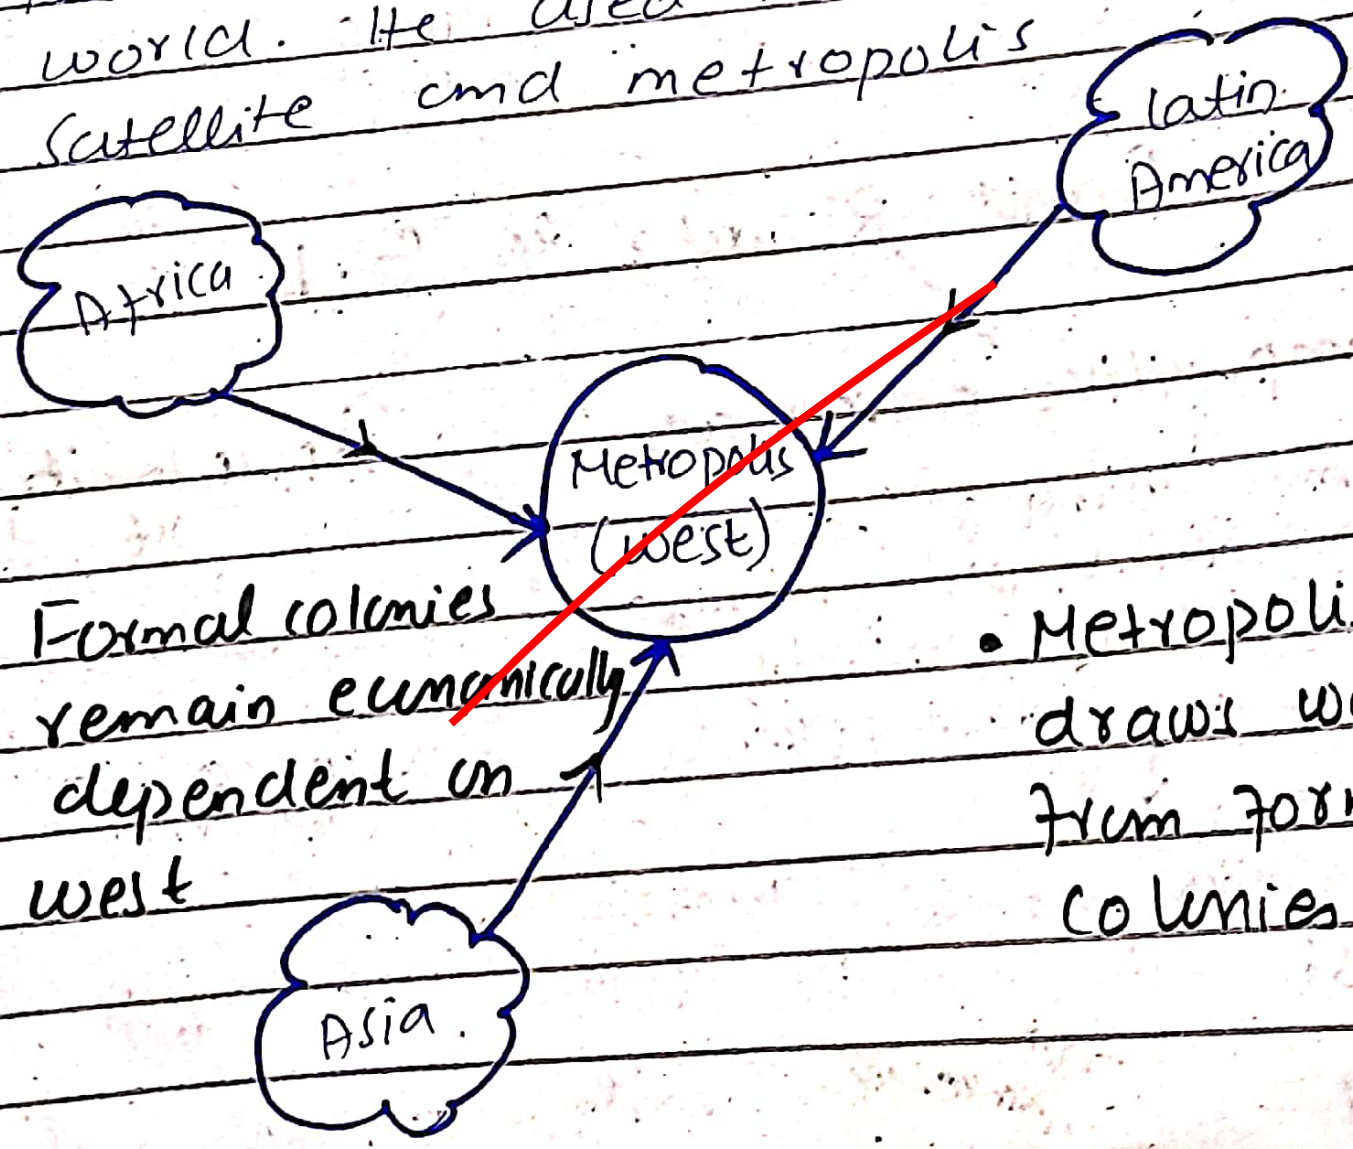 world. He used
Satellite and metropolis
Latin
America
Africa
Metropolis
(west)
Formal colonies
remain economically
dependent on
west
• Metropoli
draws
from
colonies
Asia